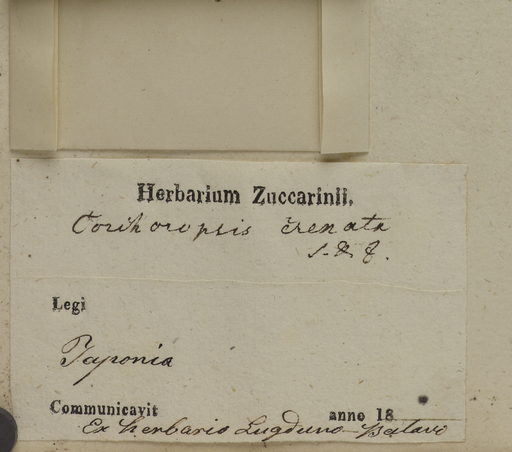 Herbarium Zuccarinii.
Corchoropsis crenata
S. & Z.
Legi
Japonia
Communicavit anno 18
Ex herbario Lugduno-Batavo